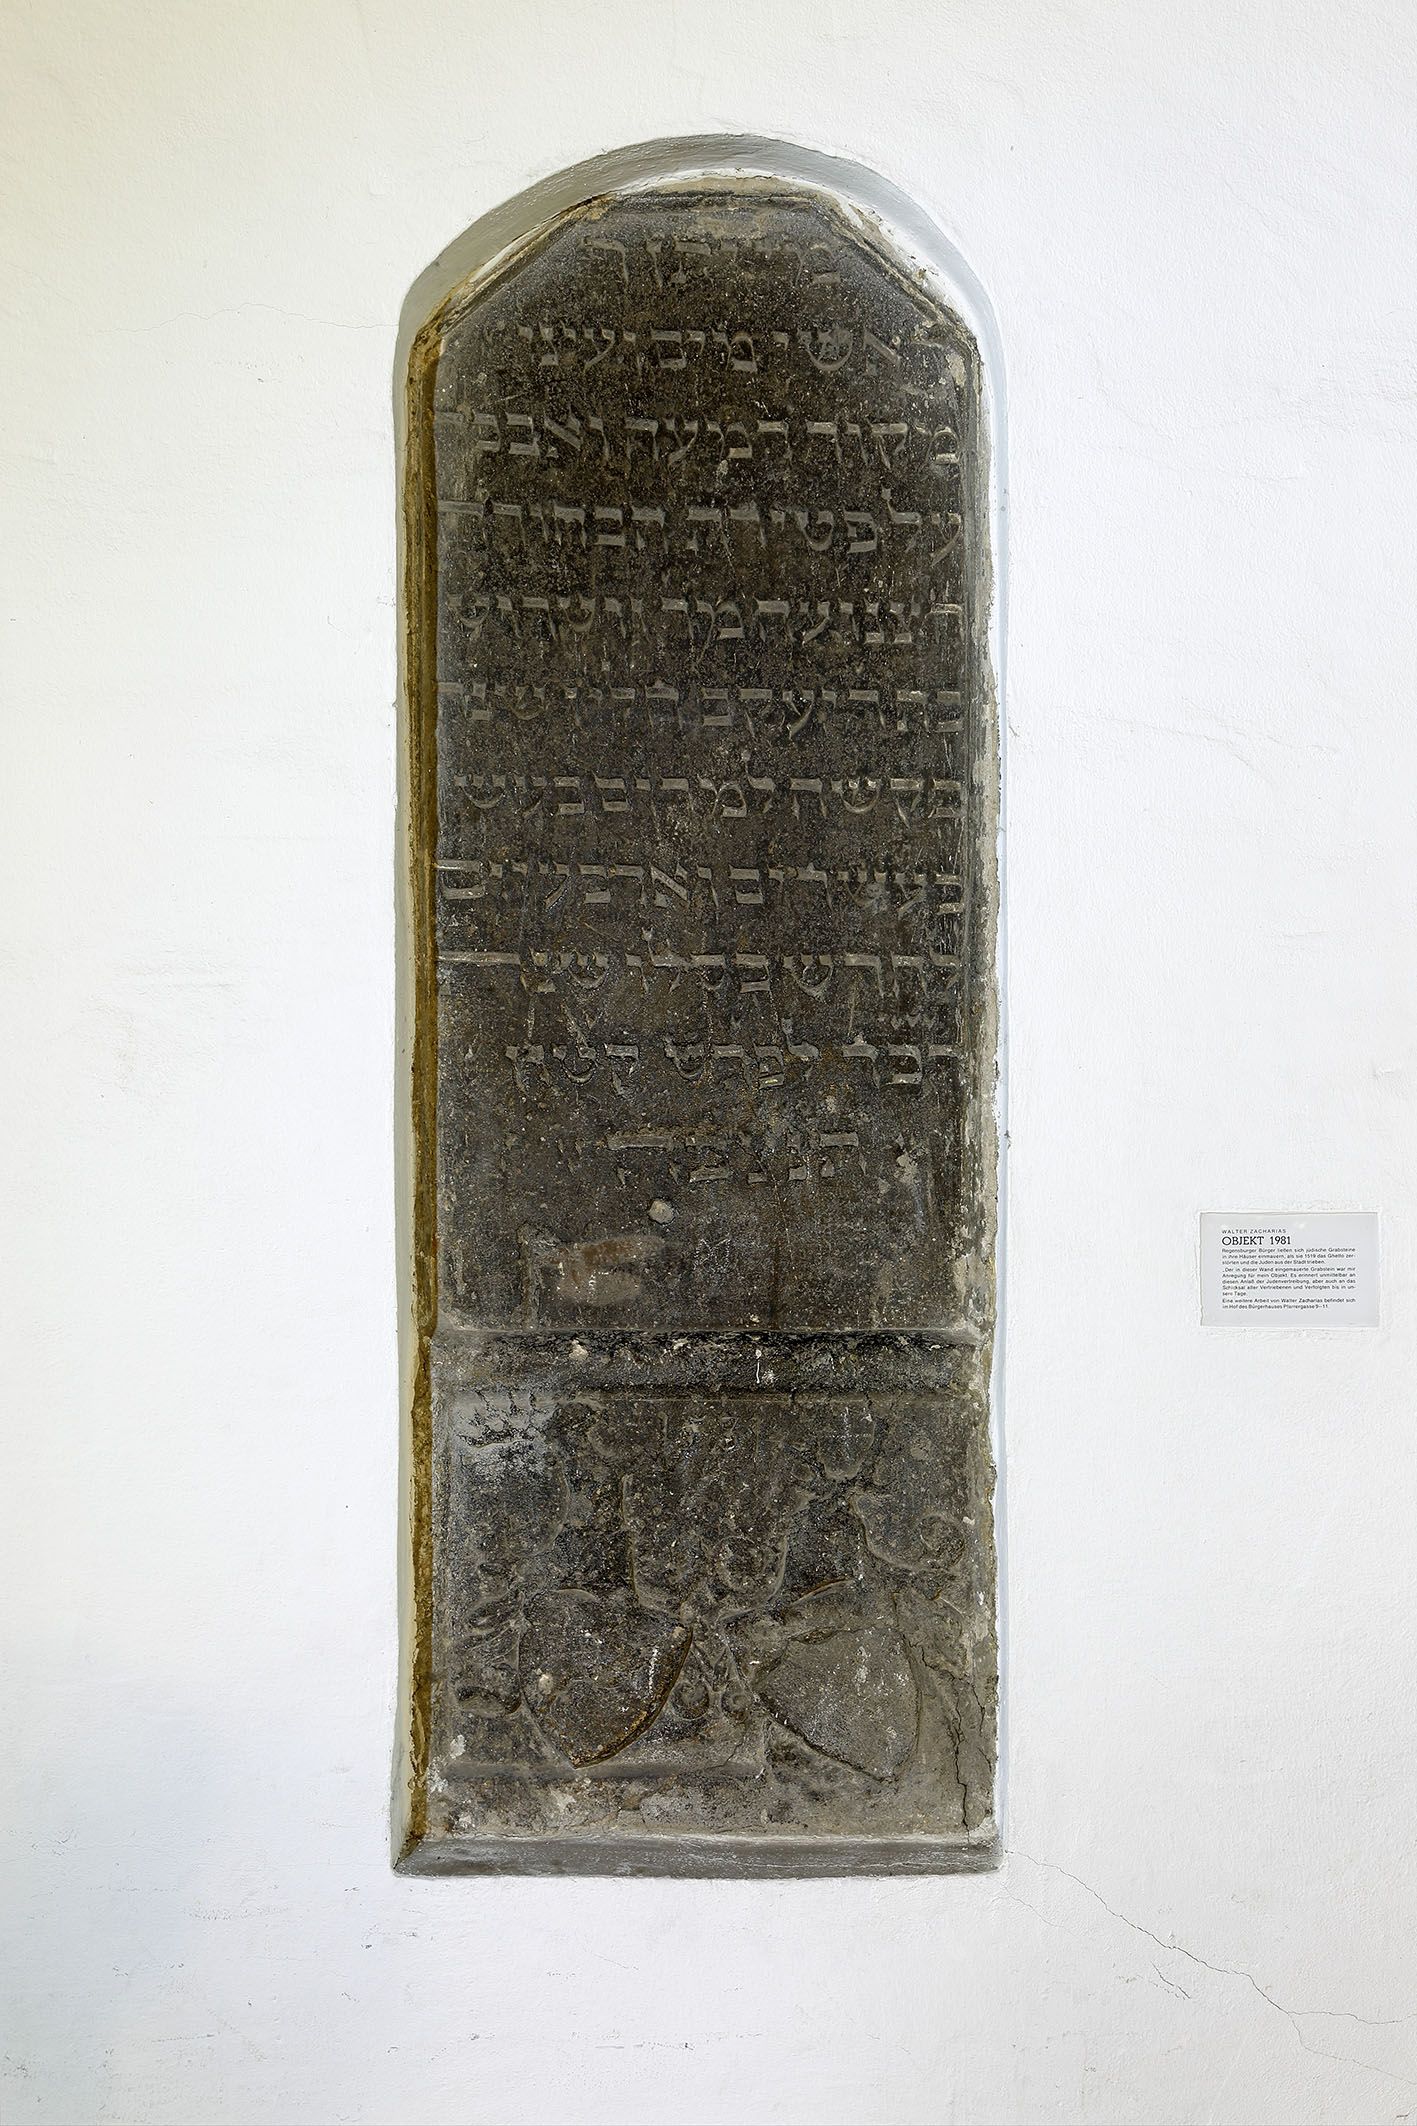 מי יתן
ראשי מים ועיני
מקור דמעה ואבכה
על פטירת הבחורה
הצנועה
בת ר יעקב הלוי
בעשרים וארבע יום
לחדש כסלו שנת
לפרט קטן
ת נ צ ב ה
WALTER ZACHARIAS
OBJEKT 1981
Regensburger Bürger ließen sich jüdische Grabsteine
in ihre Häuser einmauern, als sie 1519 das Ghetto zer-
störten und die Juden aus der Stadt trieben.
„Der in dieser Wand eingemauerte Grabstein war mir
Anregung für mein Objekt. Es erinnert unmittelbar an
diesen Anlaß der Judenvertreibung, aber auch an das
Schicksal aller Vertriebenen und Verfolgten bis in un-
sere Tage.
Eine weitere Arbeit von Walter Zacharias befindet sich
im Hof des Bürgerhauses Pfarrergasse 9–11.